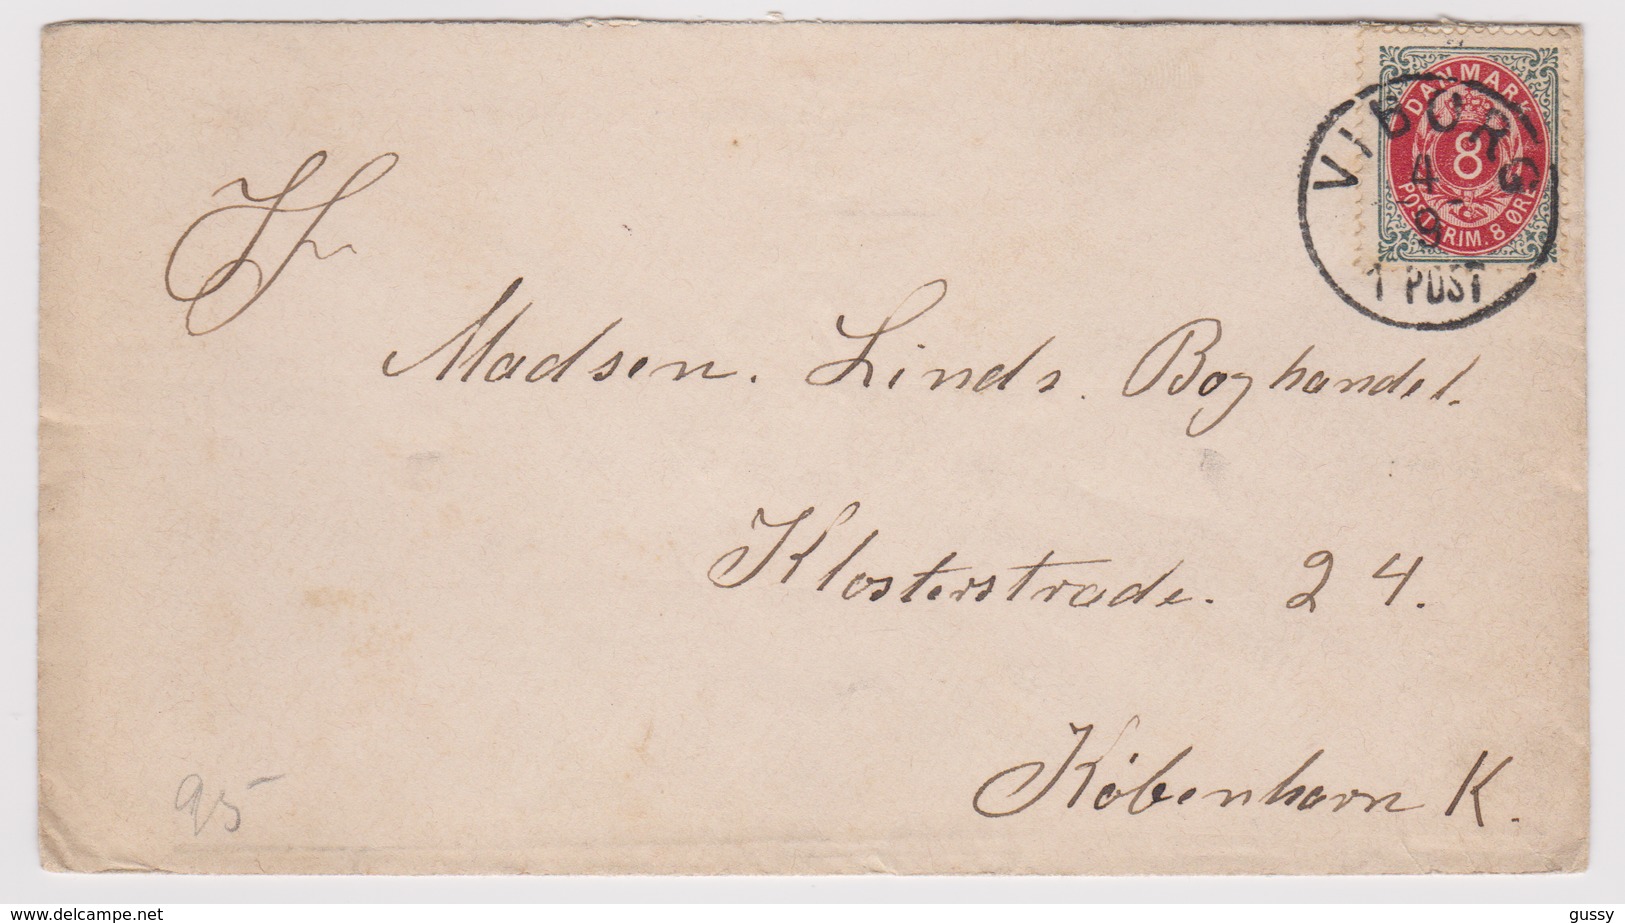 DANMARK
8
POSTFRIM. 8 ØRE
VIBORG
4
9
1 POST
H
Madsen. Linds. Boghandel.
Klosterstræde. 24.
København K.
95
www.delcampe.net
gussy